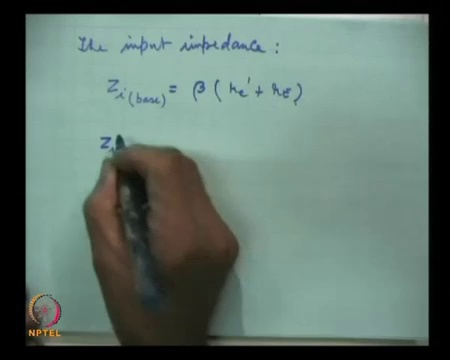 The input impedance :
Z i (base) = β ( re' + rE )
Zi
NPTEL